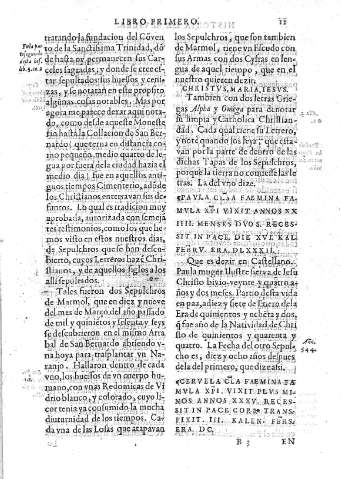 LIBRO PRIMERO. 11
tratando la fundacion del Cōvēto
de la Santissima Trinidad, dōde
hasta oy permanecen sus Carceles
sagradas, y donde se cree estar
sepultados sus huessos y cenizas,
y se notarán en este proposito
algunas cosas notables. Mas por
agora me parece dexar aqui notado,
como desde aqueste Monesterio
hasta la Collacion de San Bernardo
(que terna en distancia como
pequeño, medio quarto de legua
por fuera de la ciudad hazia el
medio dia) fue en aquellos antiguos
tiempos Cimenterio, adōde
los Christianos enterravan sus defuntos.
Lo qual es tradicion muy
aprobada, autorizada con semejātes
testimonios, como los que hemos
visto en nuestros dias,
de Sepulchros que se han descubierto,
cuyos Letreros hazē Christianos,
y de aquellos siglos a los
alli sepultados.
Tales fueron dos Sepulchros
de Marmol, que en diez y nueve
del mes de Março del año passado
de mil y quinientos y setenta y seys
se descubrieron en el mismo Arrabal
de San Bernardo abriendo vna
hoya para trasplantar vn Naranjo.
Hallaron dentro de cada
vno, los huessos de vn cuerpo humano,
con vnas Redomicas de Vidrio
blanco, y colorado, cuyo licor
tenia ya consumido la mucha
diuturnidad de los tiempos. Cada
vna de las Losas que atapavan
los Sepulchros, que son tambien
de Marmol, tiene vn Escudo con
sus Armas con dos Cifras en lengua
de aquel tiempo, que en el
nuestro quieren dezir.
CHRISTVS, MARIA, IESVS.
Tambien con dos letras Griegas
Alpha y Omega para denotar
su limpia y Catholica Christiandad.
Cada qual tiene su Letrero,
y notē quando los lea, que estavan
por la parte de dentro de las
dichas Tapas de los Sepulchros,
porque la tierra no comiesse las letras.
La del vno dize.
PAVLA CLSA FAEMINA FAMVLA
XPI VIXIT ANNOS XX
IIII. MENSES DVOS. RECESSIT
IN PACE. DIE XVI. KAL.
FEBRV. ERA. DLXXXII.
Que es dezir en Castellano.
Paula muger Ilustre sierva de Iesu
Christo bivio veynte y quatro años
y dos meses. Partio desta vida
en paz, a diez y siete de Enero de la
Era de quinientos y ochēta y dos,
q̃ fue año de la Natividad de Christo
de quinientos y quarenta y
quatro. La Fecha del otro Sepulchro
es, diez y ocho años despues
de la del primero, que dize assi.
CERVELA CLA FAEMINA FAMVLA
XPI. VIXIT PLVS MINOS
ANNOS XXXV. RECESSIT
IN PACE
FERS. ERA. DC.
B 3 EN
Año.
544.